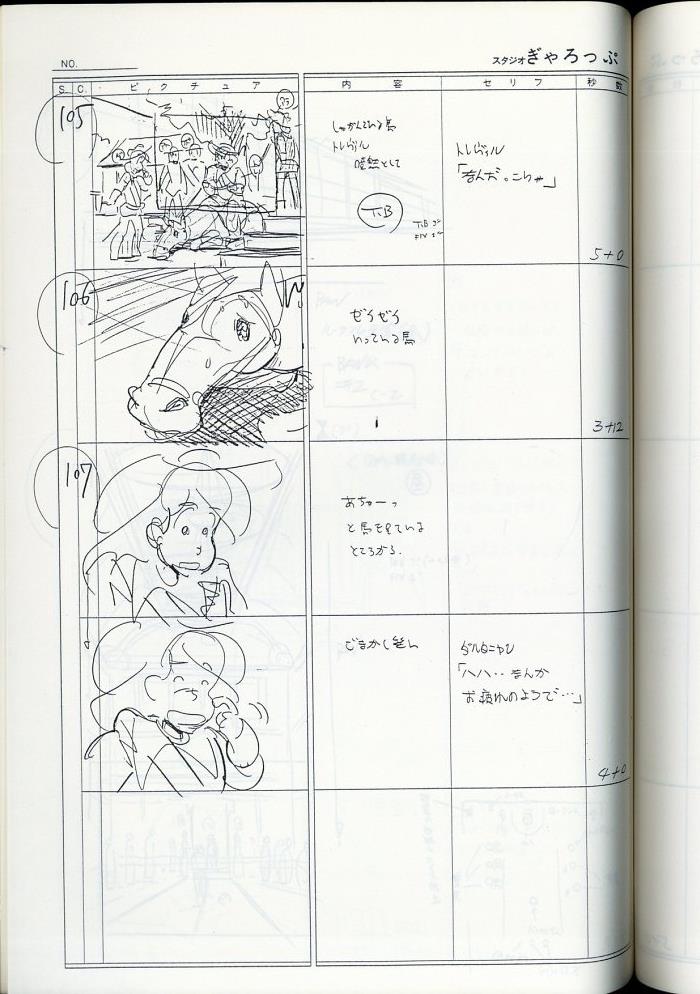 NO.
スタジオぎゃろっぷ
S. C. ピクチュア 内容 セリフ 秒数
105
しゃがんでいる馬
トレヴィル
唖然として
T.B
トレヴィル
「なんだっこりゃ」
5+0
106
ゼイゼイ
いっている馬
3+12
107
あちゃーっ
と馬を見ている
ところから.
ごまかし笑い
ダルタニャン
「ハハ‥なんか
お疲れのようで…」
4+0